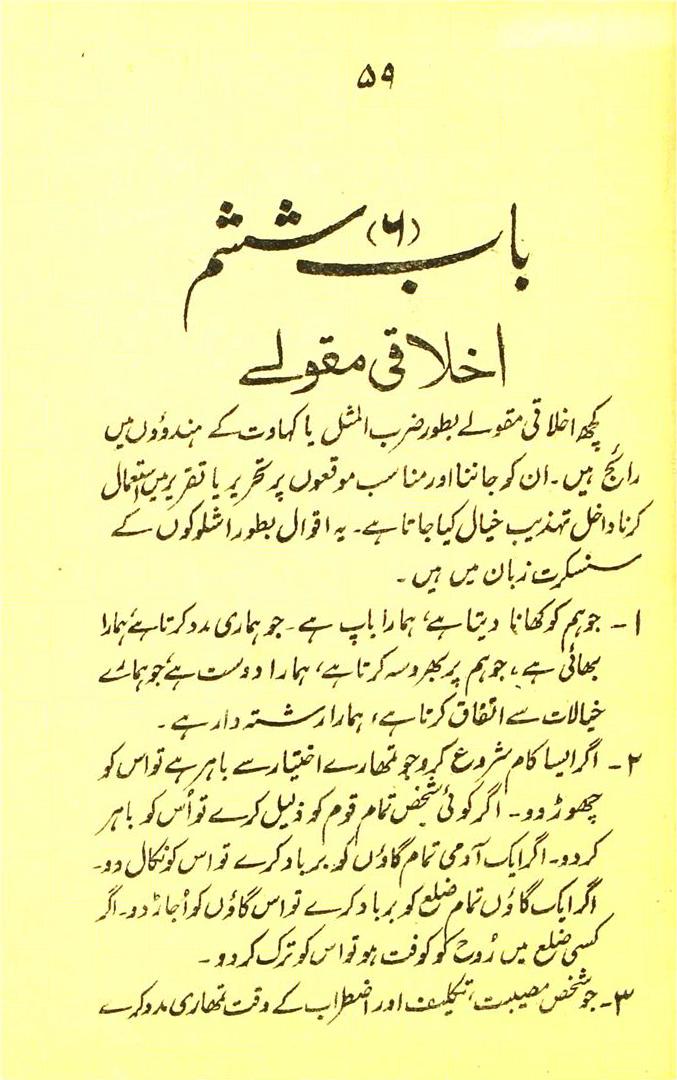 ۵۹
باب (۶) ششم
اخلاقی مقولے
کچھ اخلاقی مقولے بطور ضرب المثل یا کہاوت کے ہندوؤں میں
رائج ہیں۔ ان کو جاننا اور مناسب موقعوں پر تحریر یا تقریر میں استعمال
کرنا داخل تہذیب خیال کیا جاتا ہے۔ یہ اقوال بطور اشلوکوں کے
سنسکرت زبان میں ہیں۔
۱۔ جو ہم کو کھانا دیتا ہے، ہمارا باپ ہے۔ جو ہماری مدد کرتا ہے، ہمارا
بھائی ہے، جو ہم پر بھروسہ کرتا ہے، ہمارا دوست ہے، جو ہمارے
خیالات سے اتفاق کرتا ہے، ہمارا رشتہ دار ہے۔
۲۔ اگر ایسا کام شروع کرو جو تمھارے اختیار سے باہر ہے تو اس کو
چھوڑ دو۔ اگر کوئی شخص تمام قوم کو ذلیل کرے تو اُس کو باہر
کر دو۔ اگر ایک آدمی تمام گاؤں کو برباد کرے تو اس کو نکال دو۔
اگر ایک گاؤں تمام ضلع کو برباد کرے تو اس گاؤں کو اُجاڑ دو۔ اگر
کسی ضلع میں رُوح کو کوفت ہو تو اس کو ترک کر دو۔
۳۔ جو شخص مصیبت، تکلیف اور اضطراب کے وقت تمھاری مدد کرے